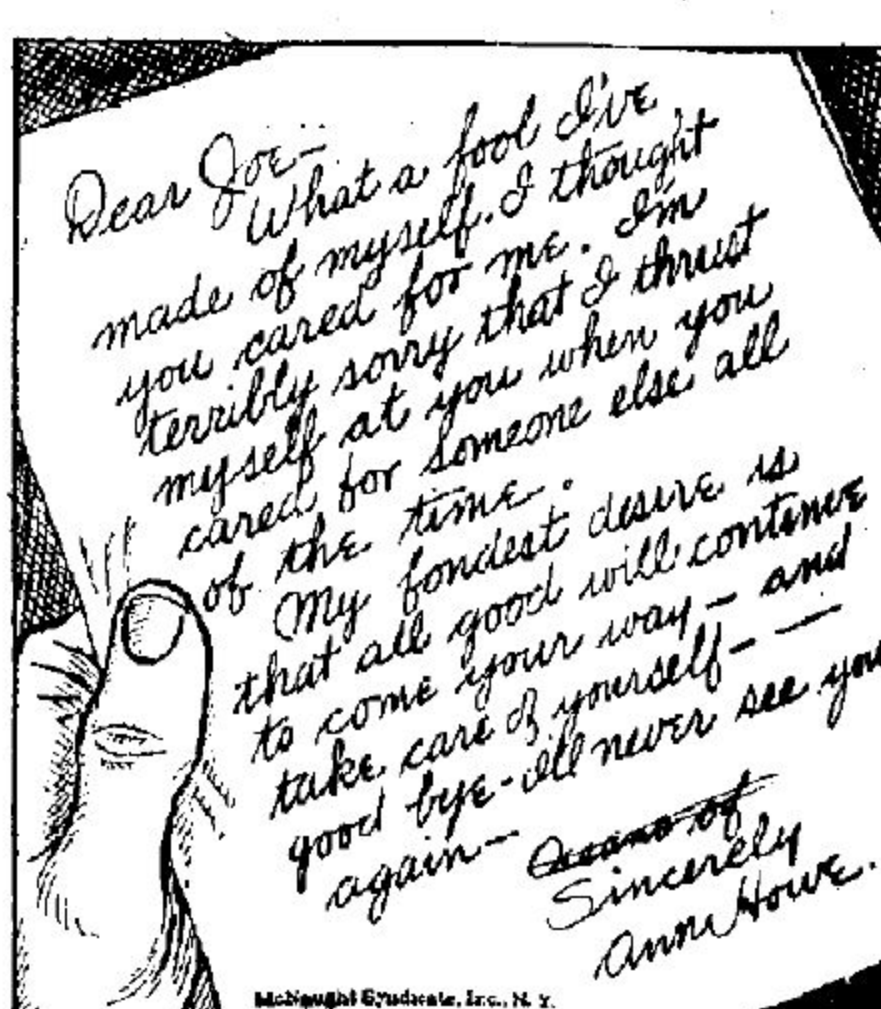 Dear Joe--
What a fool I've
made of myself. I thought
you cared for me. I'm
terribly sorry that I thrust
myself at you when you
cared for someone else all
of the time.
My fondest desire is
that all good will continue
to come your way - and
take care of yourself - —
good bye - I'll never see you
again -
Oceans of
Sincerely
Ann Howe.
McNaught Syndicate, Inc., N. Y.